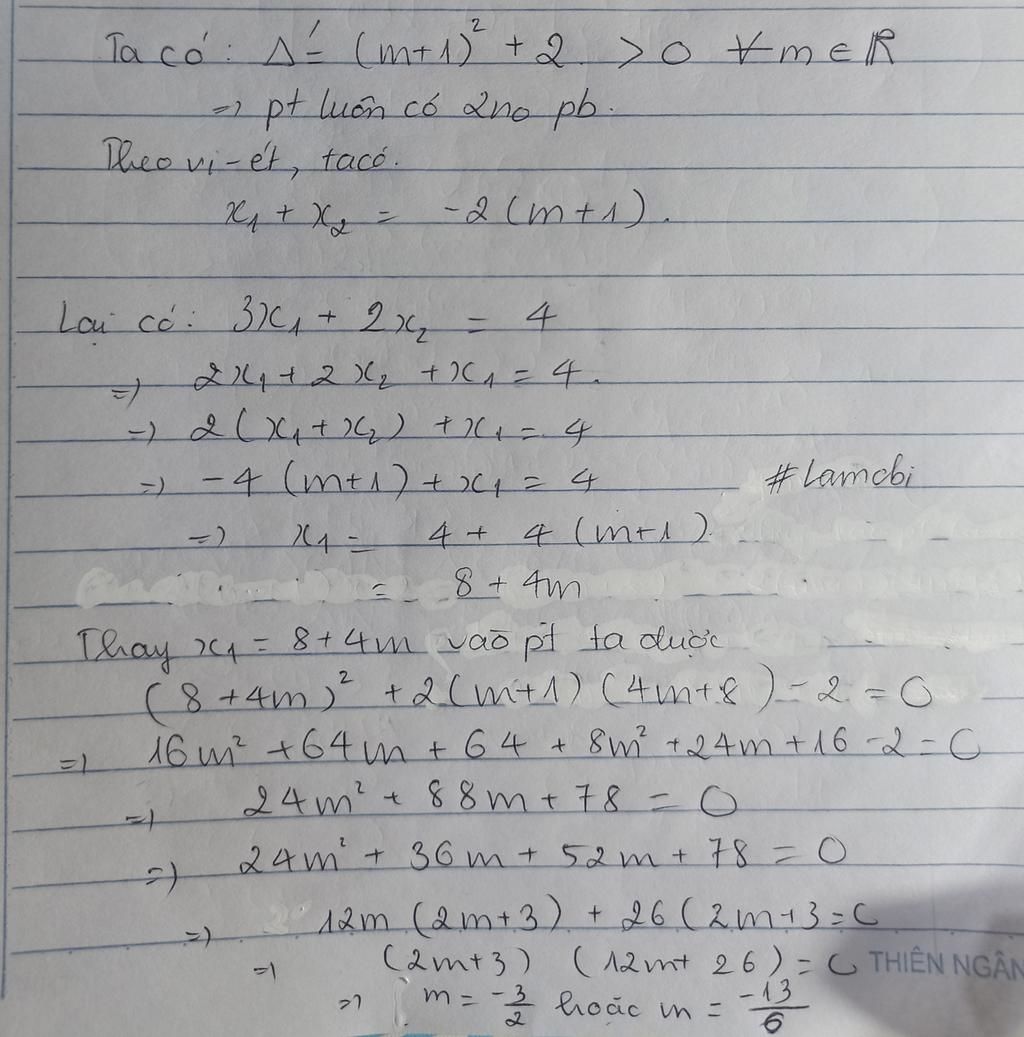 Ta có: Δ' = (m+1)² + 2 > 0 ∀m ∈ R
=> pt luôn có 2no pb.
Theo vi-ét, ta có.
x₁ + x₂ = -2(m+1).
Lại có: 3x₁ + 2x₂ = 4
=> 2x₁ + 2x₂ + x₁ = 4.
=> 2(x₁+x₂) + x₁ = 4
=> -4(m+1) + x₁ = 4
#Lamcbi
=> x₁ = 4 + 4(m+1)
= 8 + 4m
Thay x₁ = 8+4m vào pt ta được
(8+4m)² + 2(m+1)(4m+8) - 2 = 0
=> 16m² + 64m + 64 + 8m² + 24m + 16 - 2 = 0
=> 24m² + 88m + 78 = 0
=> 24m² + 36m + 52m + 78 = 0
=> 12m(2m+3) + 26(2m+3 = 0
=> (2m+3)(12m+26) = 0
THIÊN NGÂN
=> m = -3/2 hoặc m = -13/6